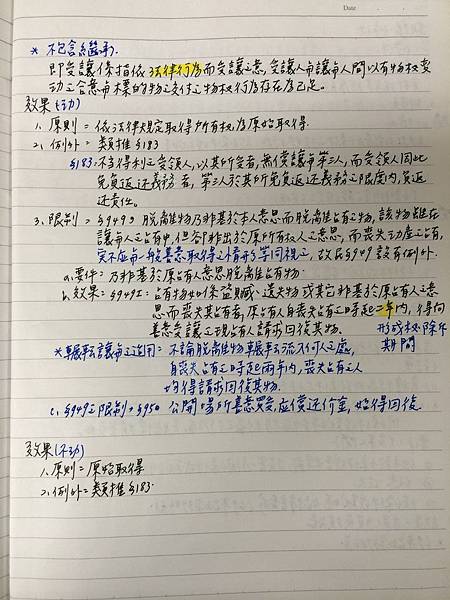 Date
* 不包含繼承.
即受讓係指依法律行為而受讓之意,受讓人與讓與人間以有物權變
动之合意与標的物之交付之物权行為存在為已足。
效果(动)
1. 原則=依法律規定取得所有权,為原始取得.
2. 例外=類推§183
§183:不当得利之受領人,以其所受者,無償讓与第三人,而受領人因此
免負返还義務者,第三人於其所免負返还義務之限度內,負返
还責任。
3. 限制=§949:脫離物乃非基於本人意思而脫離占有之物,該物雖在
讓与人之占有中,但否非出於原所有权人之意思,而喪失动產之占有,
実不应与一般善意取得之情形等同視之,故民§949設有例外.
a.要件:乃非基於原占有人意思脫離占有物.
b.效果=§949I:占有物如係盜贓、遺失物或其它非基於原占有人之意
思而喪失其占有者,原占有人自喪失占有之時起二年內,得向
善意受讓之現占有人請求回復其物.
形成权除斥
期間
*輾轉讓与之適用:不論脫離物輾轉流入何人之處,
自喪失占有之時起兩年內,喪失占有之人
均得請求回復其物.
c.§949之限制=§950 公開場所善意買受,应償还价金,始得回復.
效果(不动)
1.原則=原始取得
2.例外=類推§183.